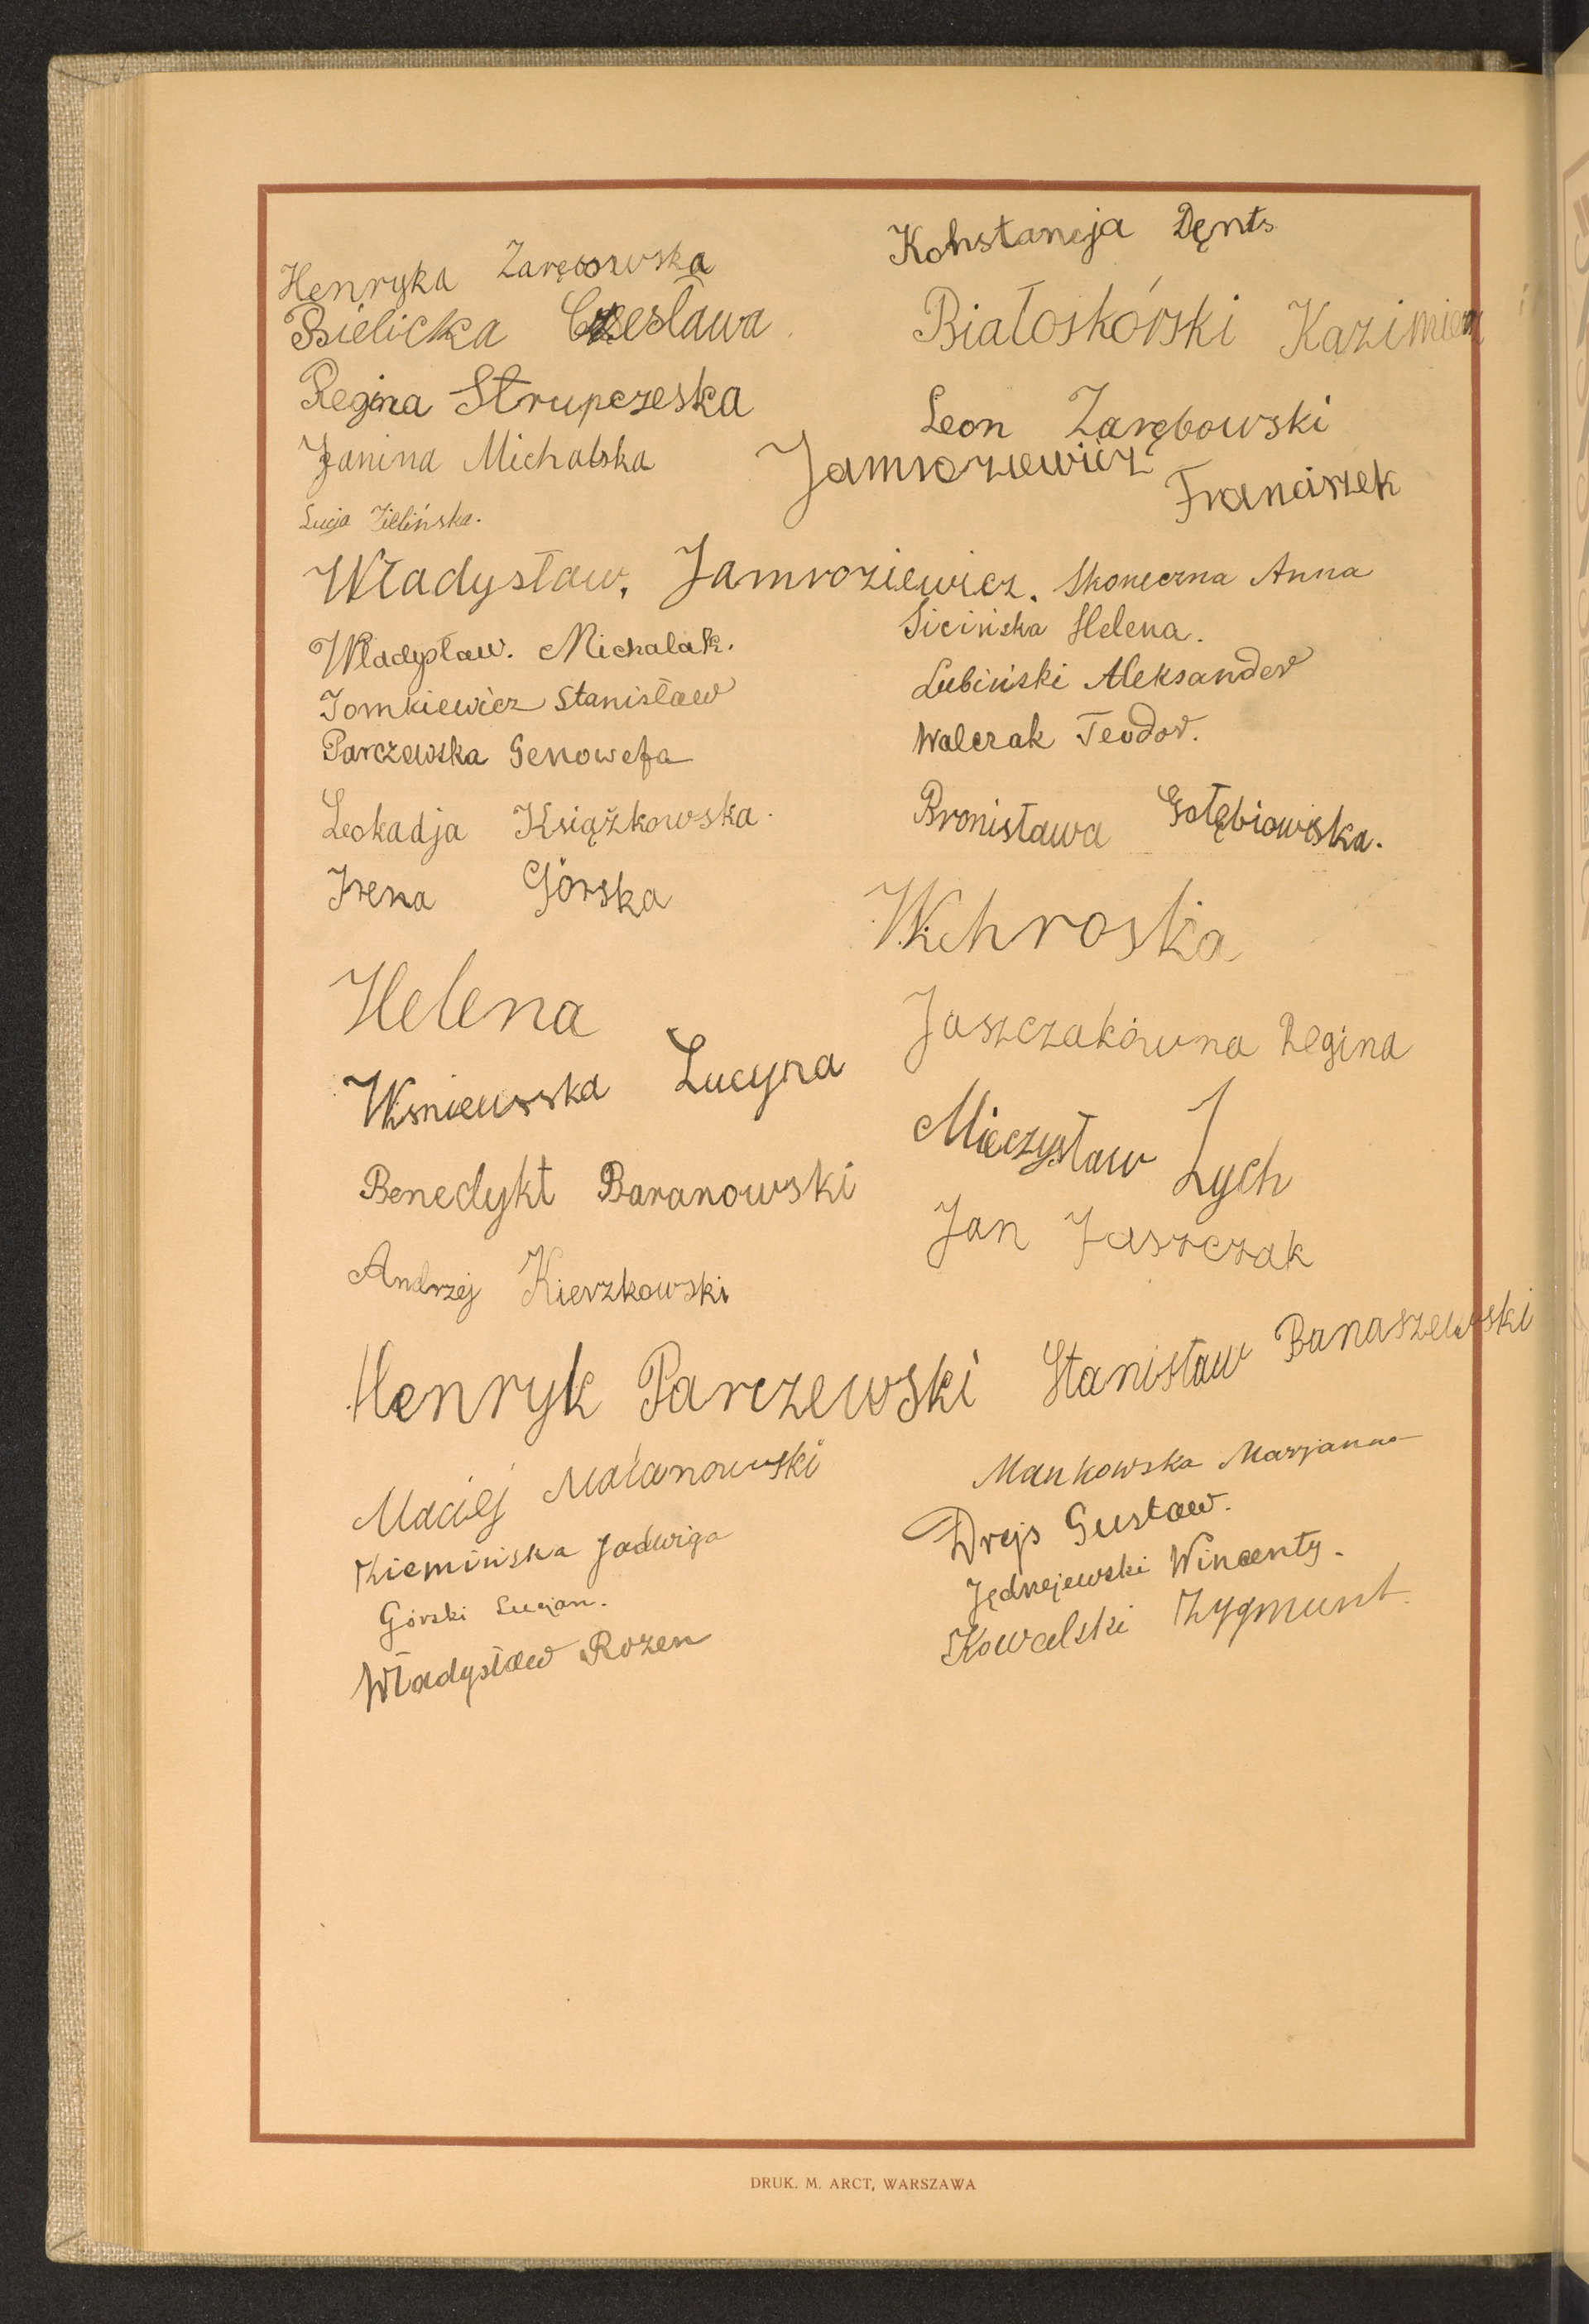 Henryka Zarębowska
Bielicka Czesława
Regina Strupczeska
Janina Michalska
Lucja Zielińska.
Władysław, Jamroziewicz.
Władysław. Michalak.
Tomkiewicz Stanisław
Parczewska Genowefa
Leokadja Książkowska.
Irena Górska
Helena
Wiśniewska Lucyna
Benedykt Baranowski
Andrzej Kierzkowski
Henryk Parczewski
Maciej Malanowski
Kiemińska Jadwiga
Górski Lucjan.
Władysław Rozen
Konstancja Dęnts
Białoskórski Kazimierz
Leon Zarębowski
Jamroziewicz
Franciszek
Skoneczna Anna
Sicińska Helena.
Lubiński Aleksander
Walczak Teodor.
Bronisława Gołębiowska.
Jaszczakówna Regina
Mieczysław Zych
Jan Jaszczak
Stanisław Banaszewski
Mankowska Marjanna
Drejs Gustaw.
Jędrzejewski Wincenty.
Kowalski Zygmunt.
DRUK. M. ARCT, WARSZAWA